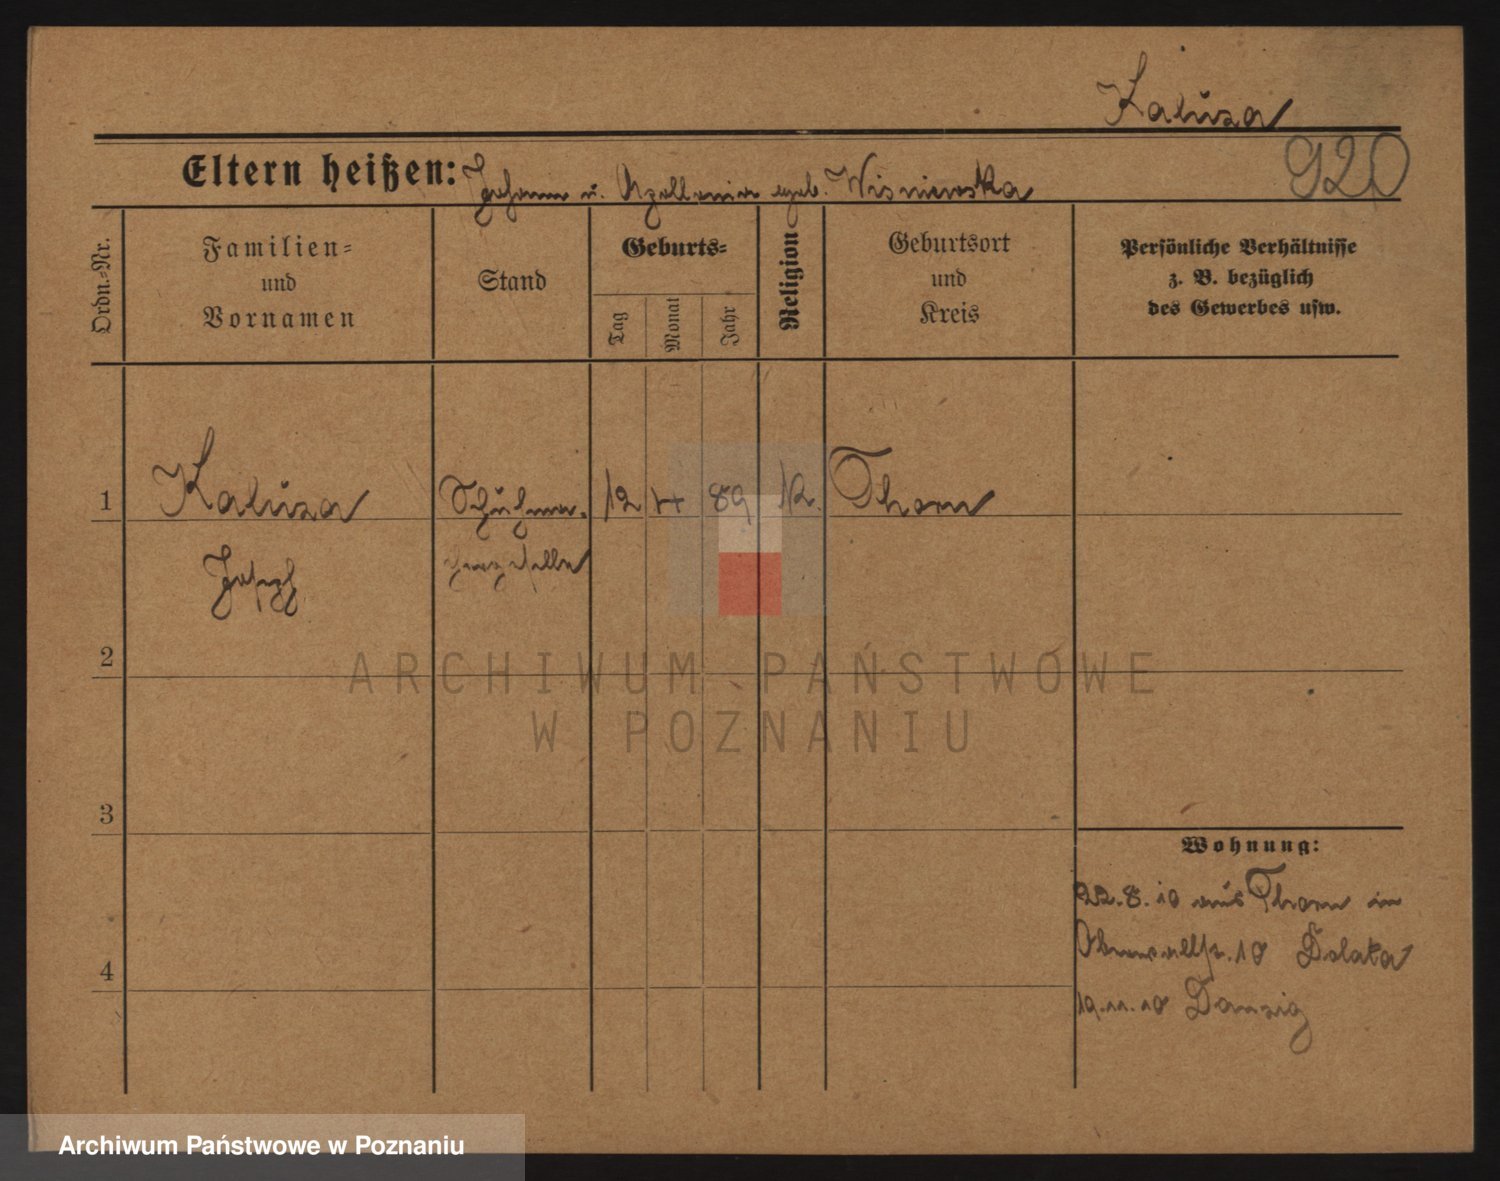 Kaluza
920
Eltern heißen: Johann u. Apollonia geb. Wisniewska
Ordn.-Nr.
Familien-
und
Vornamen
Stand
Geburts-
Tag
Monat
Jahr
Religion
Geburtsort
und
Kreis
Persönliche Verhältnisse
z. B. bezüglich
des Gewerbes usw.
1 Kaluza Schuhma- 12 89 Thorn
Joseph
2
3
4
Wohnung:
22.8.10 aus Thorn in
19.11.10 Danzig
ARCHIWUM PAŃSTWOWE
W POZNANIU
Archiwum Państwowe w Poznaniu